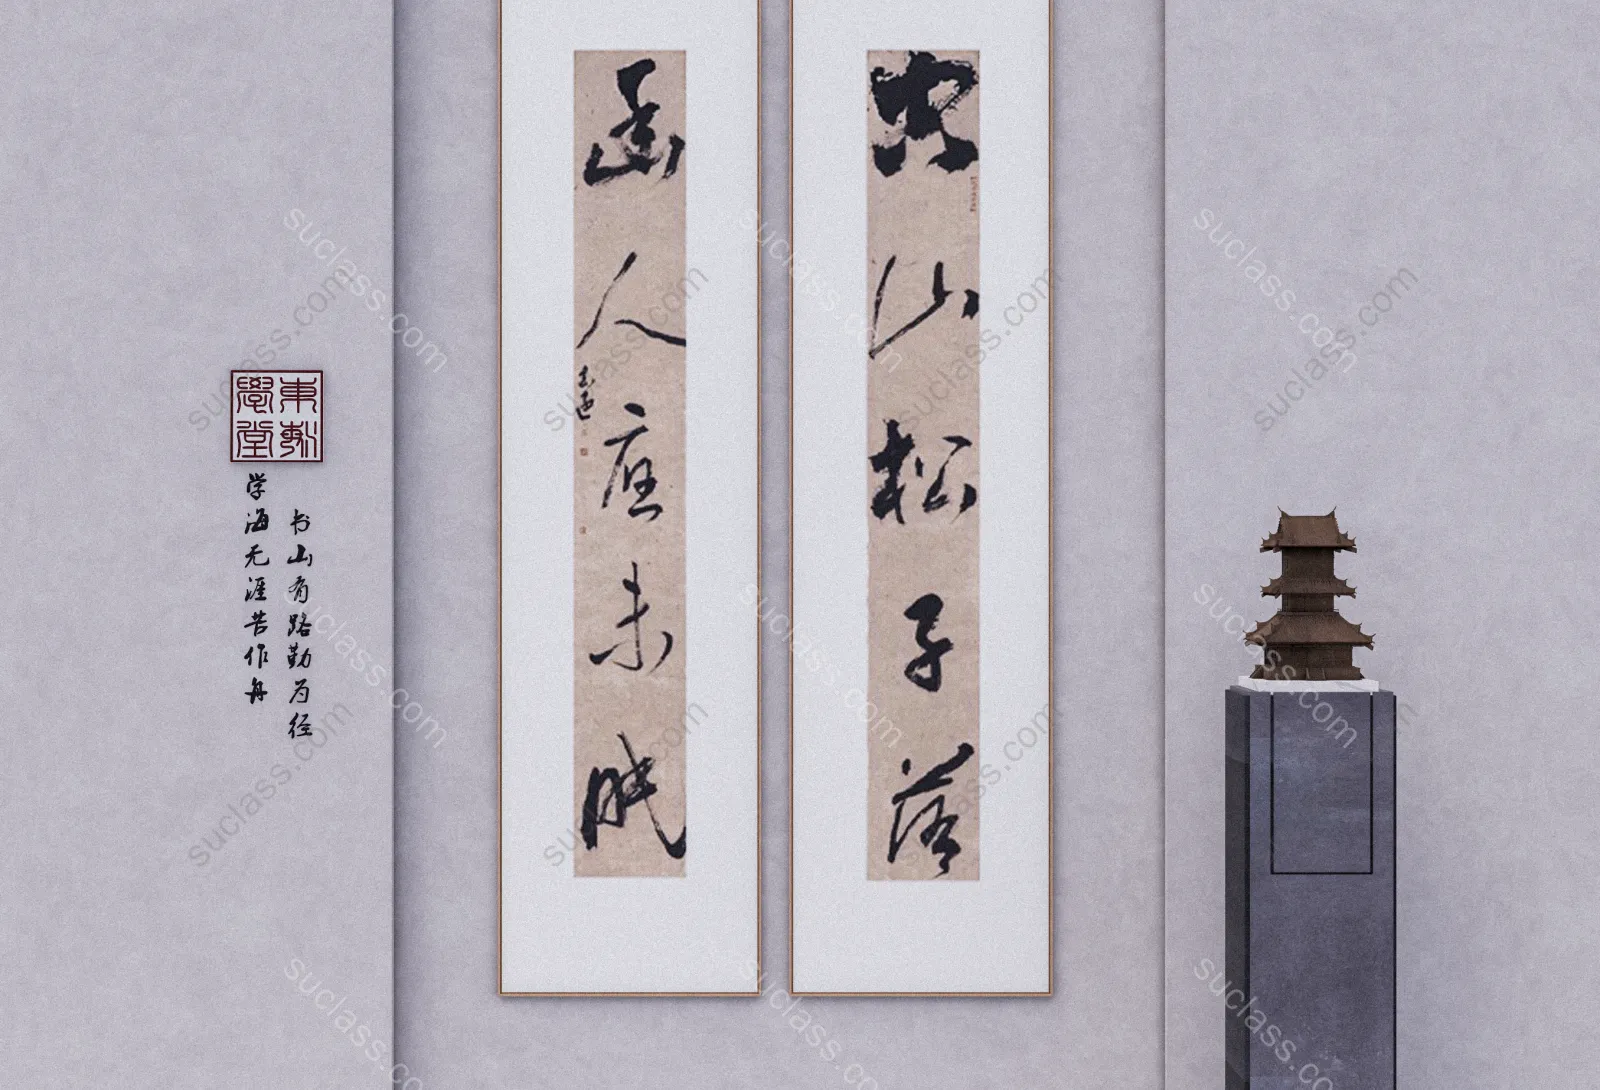 空山松子落
幽人應未眠
志遜
東制
學堂
书山有路勤为径
学海无涯苦作舟
suclass.com